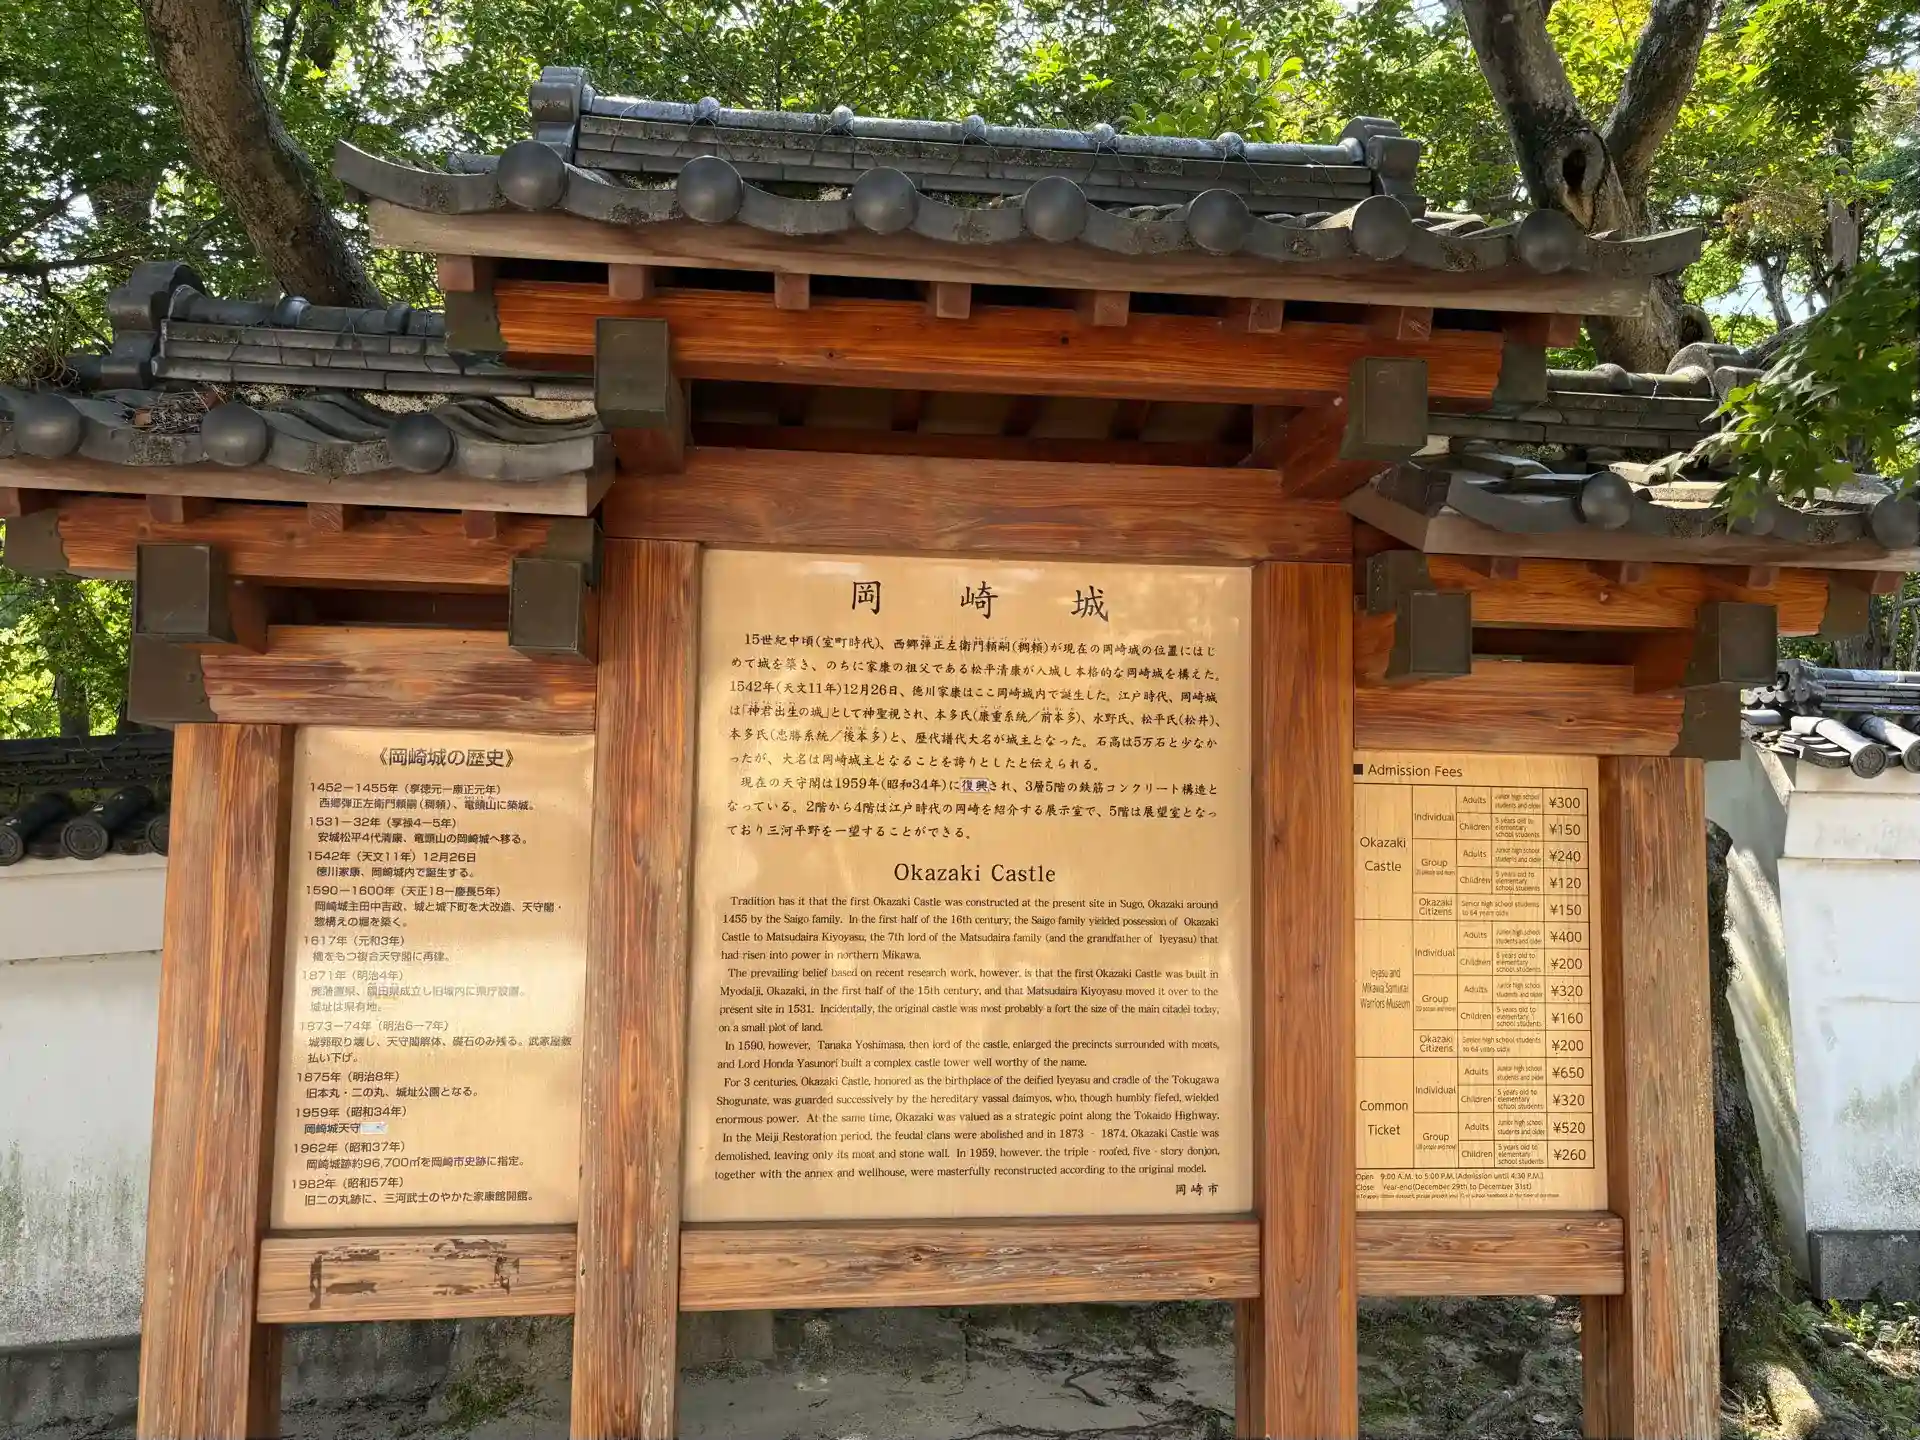 《岡崎城の歴史》
1452−1455年（享徳元−康正元年）
西郷弾正左衛門頼嗣（稠頼）、竜頭山に築城。
1531−32年（享禄4−5年）
安城松平4代清康、竜頭山の岡崎城へ移る。
1542年（天文11年）12月26日
徳川家康、岡崎城内で誕生する。
1590−1600年（天正18−慶長5年）
岡崎城主田中吉政、城と城下町を大改造、天守閣・
惣構えの堀を築く。
1617年（元和3年）
櫓をもつ複合天守閣に再建。
1871年（明治4年）
廃藩置県、額田県成立し旧城内に県庁設置。
城址は県有地。
1873−74年（明治6−7年）
城郭取り壊し、天守閣解体、礎石のみ残る。武家屋敷
払い下げ。
1875年（明治8年）
旧本丸・二の丸、城址公園となる。
1959年（昭和34年）
岡崎城天守
1962年（昭和37年）
岡崎城跡約96,700㎡を岡崎市史跡に指定。
1982年（昭和57年）
旧二の丸跡に、三河武士のやかた家康館開館。
岡崎城
15世紀中頃(室町時代)、西郷弾正左衛門頼嗣(稠頼)が現在の岡崎城の位置にはじ
めて城を築き、のちに家康の祖父である松平清康が入城し本格的な岡崎城を構えた。
1542年(天文11年)12月26日、徳川家康はここ岡崎城内で誕生した。江戸時代、岡崎城
は「神君出生の城」として神聖視され、本多氏(康重系統／前本多)、水野氏、松平氏(松井)、
本多氏(忠勝系統／後本多)と、歴代譜代大名が城主となった。石高は5万石と少なか
ったが、大名は岡崎城主となることを誇りとしたと伝えられる。
現在の天守閣は1959年(昭和34年)に復興され、3層5階の鉄筋コンクリート構造と
なっている。2階から4階は江戸時代の岡崎を紹介する展示室で、5階は展望室となっ
ており三河平野を一望することができる。
Okazaki Castle
Tradition has it that the first Okazaki Castle was constructed at the present site in Sugo, Okazaki around
1455 by the Saigo family. In the first half of the 16th century, the Saigo family yielded possession of Okazaki
Castle to Matsudaira Kiyoyasu, the 7th lord of the Matsudaira family (and the grandfather of Iyeyasu) that
had risen into power in northern Mikawa.
The prevailing belief based on recent research work, however, is that the first Okazaki Castle was built in
Myodaiji, Okazaki, in the first half of the 15th century, and that Matsudaira Kiyoyasu moved it over to the
present site in 1531. Incidentally, the original castle was most probably a fort the size of the main citadel today,
on a small plot of land.
In 1590, however, Tanaka Yoshimasa, then lord of the castle, enlarged the precincts surrounded with moats,
and Lord Honda Yasunori built a complex castle tower well worthy of the name.
For 3 centuries, Okazaki Castle, honored as the birthplace of the deified Iyeyasu and cradle of the Tokugawa
Shogunate, was guarded successively by the hereditary vassal daimyos, who, though humbly fiefed, wielded
enormous power. At the same time, Okazaki was valued as a strategic point along the Tokaido Highway.
In the Meiji Restoration period, the feudal clans were abolished and in 1873 - 1874, Okazaki Castle was
demolished, leaving only its moat and stone wall. In 1959, however, the triple - roofed, five - story donjon,
together with the annex and wellhouse, were masterfully reconstructed according to the original model.
岡崎市
■ Admission Fees
Okazaki Castle
Individual
Adults Junior high school students and older ¥300
Children 5 years old to elementary school students ¥150
Group
Adults Junior high school students and older ¥240
Children 5 years old to elementary school students ¥120
Okazaki Citizens Senior high school students to 64 years olds ¥150
Ieyasu and Mikawa Samurai Warriors Museum
Individual
Adults Junior high school students and older ¥400
Children 5 years old to elementary school students ¥200
Group
Adults Junior high school students and older ¥320
Children 5 years old to elementary school students ¥160
Okazaki Citizens Senior high school students to 64 years olds ¥200
Common Ticket
Individual
Adults Junior high school students and older ¥650
Children 5 years old to elementary school students ¥320
Group
Adults Junior high school students and older ¥520
Children 5 years old to elementary school students ¥260
Open 9:00 A.M. to 5:00 P.M. (Admission until 4:30 P.M.)
Close Year-end (December 29th to December 31st)